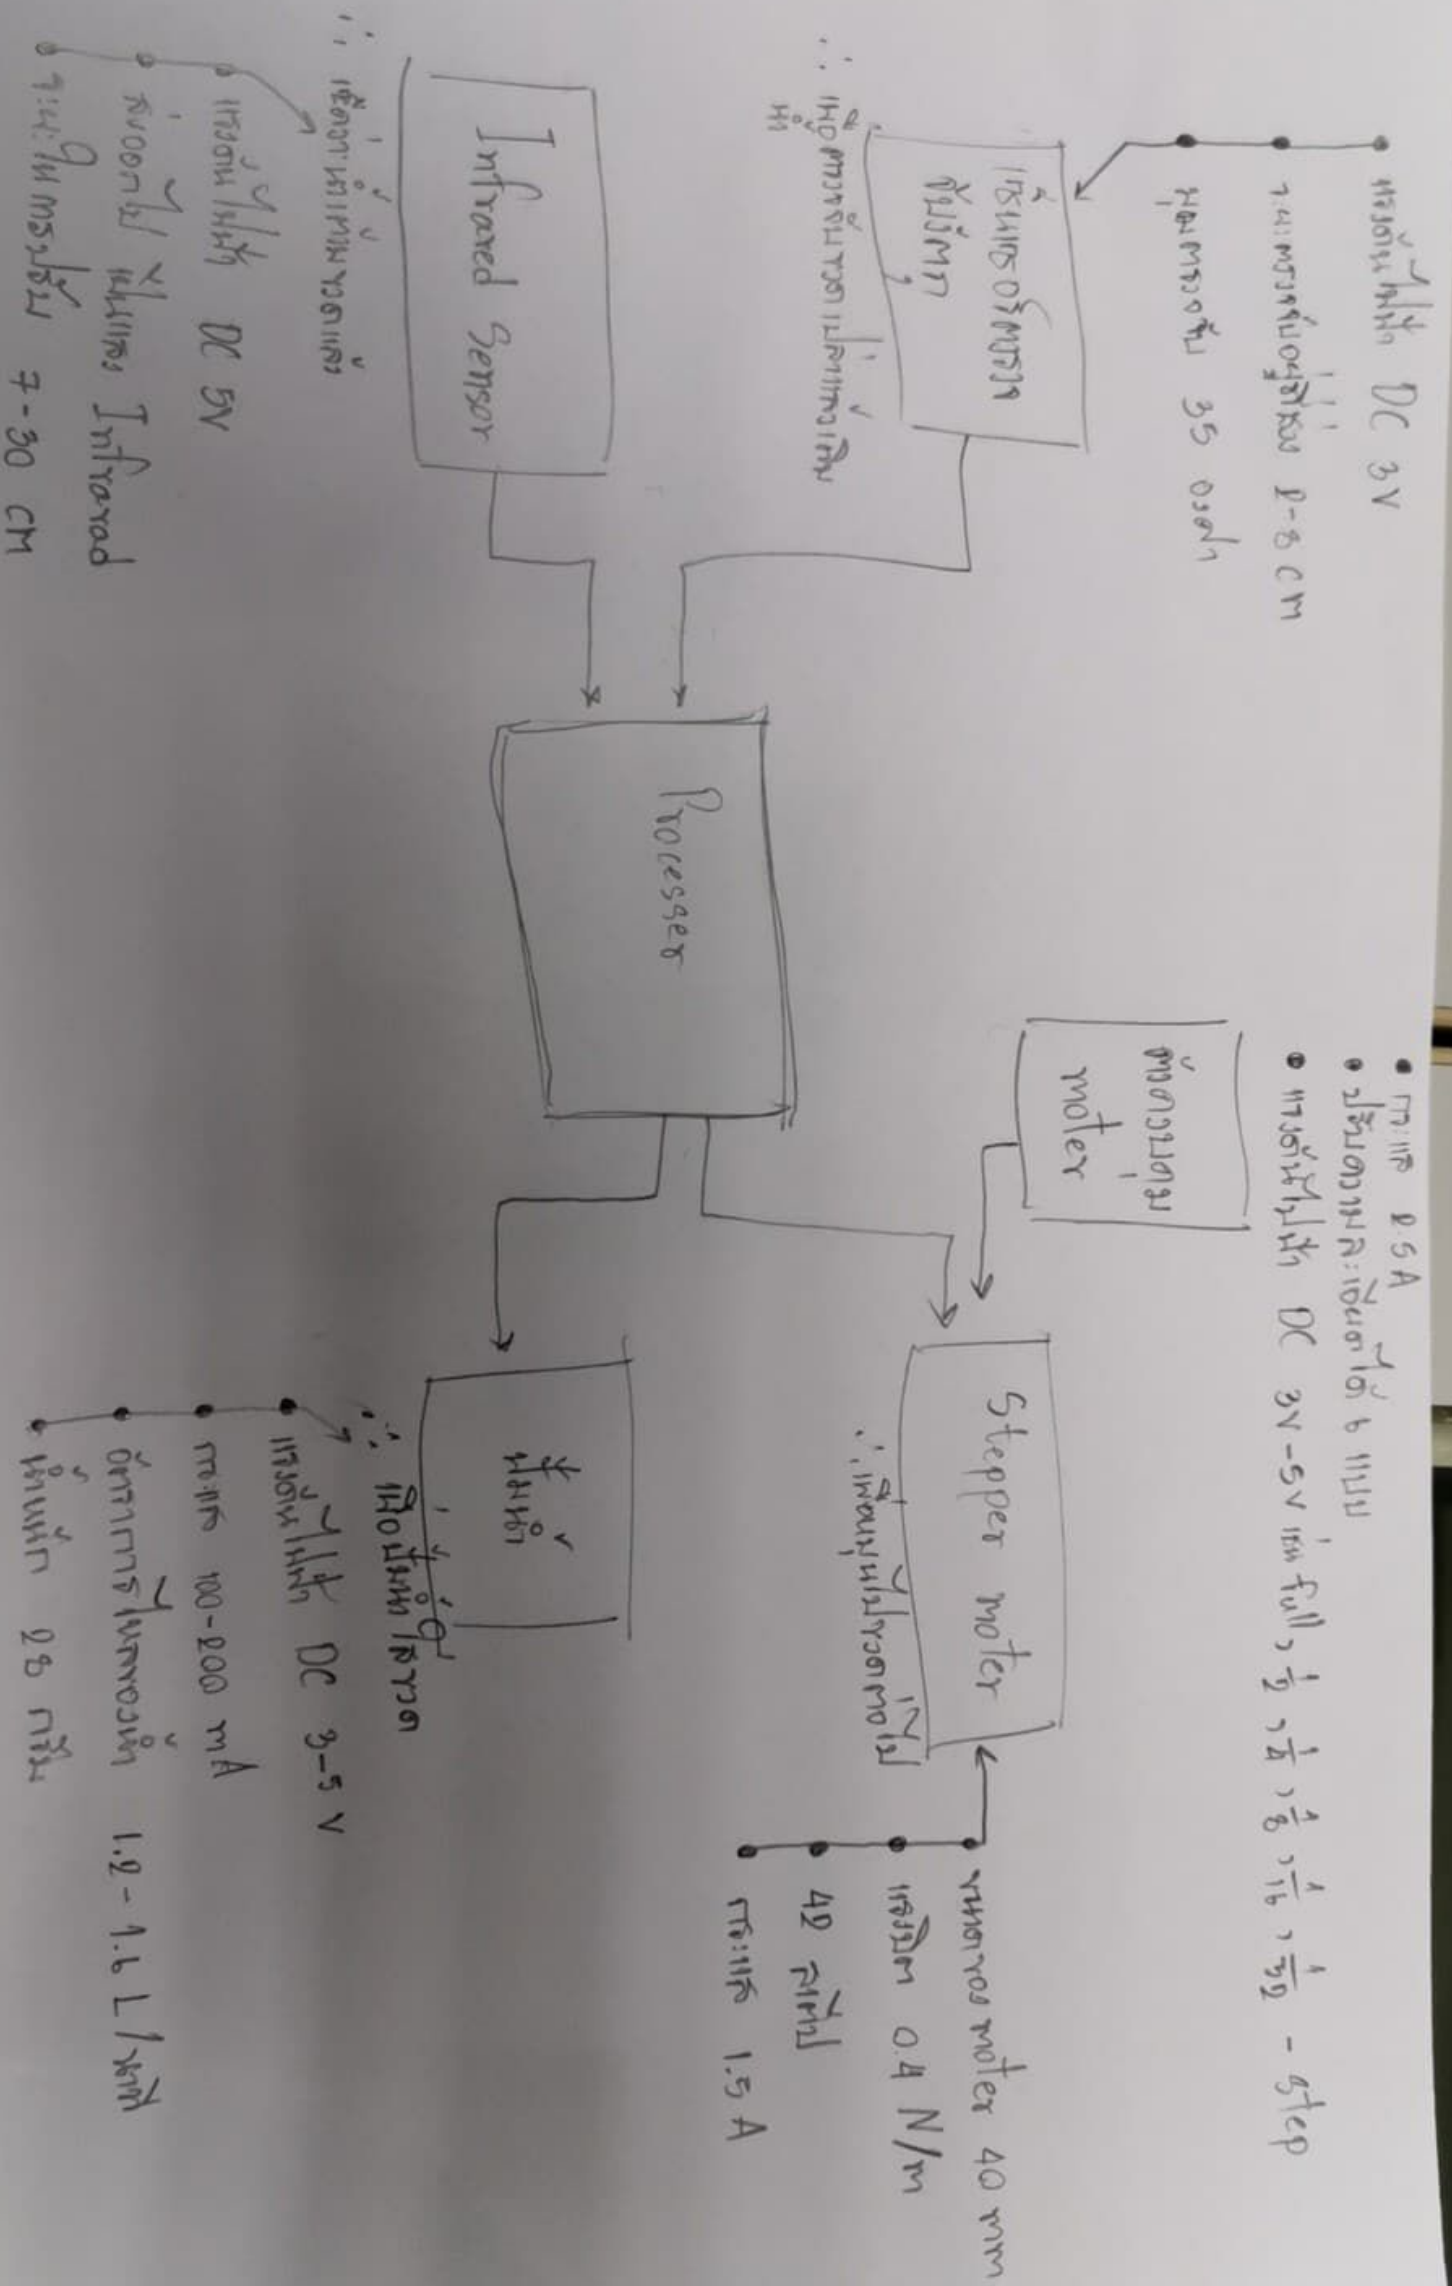 แรงดันไฟฟ้า DC 3V
ระยะตรวจจับอยู่ที่ช่วง 2-8 cm
มุมตรวจจับ 35 องศา
เซ็นเซอร์ตรวจ
จับวัตถุ
∴ เพื่อตรวจจับขวดเปล่าแล้วเติม
น้ำ
Infrared Sensor
∴ เช็คว่าน้ำเต็มขวดแล้ว
แรงดันไฟฟ้า DC 5V
ส่งออกไป เป็นแสง Infrarad
ระยะในการปรับ 7-30 cm
Processer
กระแส 2.5A
ปรับความละเอียดได้ 6 แบบ
แรงดันไฟฟ้า DC 3V-5V เช่น full, 1/2, 1/4, 1/8, 1/16, 1/32 - step
ตัวควบคุม
moter
Stepper moter
∴ เพื่อหมุนไปขวดต่อไป
ขนาดของ moter 40 mm
แรงบิด 0.4 N/m
42 สเต็ป
กระแส 1.5 A
ปั๊มน้ำ
∴ เพื่อปั๊มน้ำใส่ขวด
แรงดันไฟฟ้า DC 3-5 V
กระแส 100-200 mA
อัตราการไหลของน้ำ 1.2 - 1.6 L/นาที
น้ำหนัก 28 กรัม